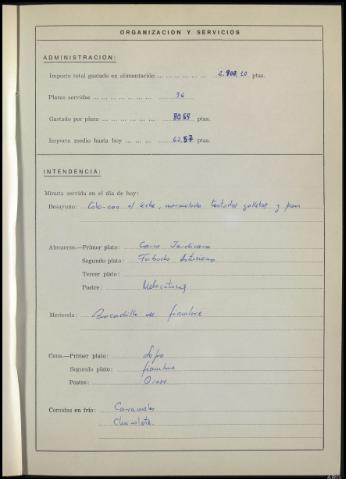 ORGANIZACION Y SERVICIOS
ADMINISTRACION:
Importe total gastado en alimentación ptas.
Plazas servidas 36
Gastado por plaza 80 ptas.
Importe medio hasta hoy 62,57 ptas.
INTENDENCIA:
Minuta servida en el día de hoy:
Desayuno: Cola-cao al leche, mermelada tostadas galletas y pan
Almuerzo—Primer plato: Carne Jardinera
Segundo plato: Fabada Asturiana
Tercer plato:
Postre: Melocotones
Merienda: Bocadillo de fiambre
Cena—Primer plato: Sopa
Segundo plato: fiambre
Postre:
Comidas en frío: Caramelos
Chocolate